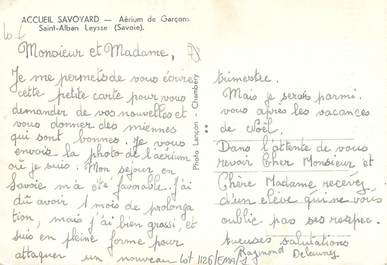 ACCUEIL SAVOYARD — Aérium de Garçons
Saint-Alban Leysse (Savoie).
Monsieur et Madame,
Je me permets de vous écrire
cette petite carte pour vous
demander de vos nouvelles et
vous donner des miennes
qui sont bonnes. Je vous
envois la photo de l'aérium
où je suis. Mon séjour en
Savoie m'a été favorable. J'ai
dû avoir 1 mois de prolonga
tion, mais j'ai bien grossi, et
suis en pleine forme pour
attaquer un nouveau
Photo Lançon - Chambéry
trimestre.
Mais je serais parmi
vous après les vacances
de Noël.
Dans l'attente de vous
revoir Cher Monsieur et
Chère Madame recevez
d'un élève qui ne vous
oublie pas ses respec-
tueuses salutations
Raymond Delaunay
Lot 1126/EMA/1